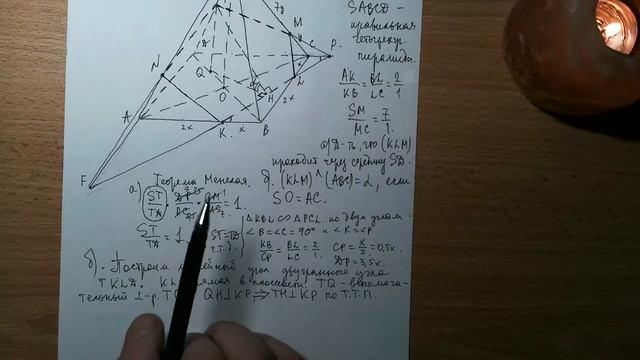 SABCD -
правильная
четырехуг.
пирамида.
AK/KB = BL/LC = 2/1
SM/MC = 7/1.
а) Д-ть, что (KLM)
проходит через середину SD.
б). (KLM) ^ (ABC) = α, если
SO = AC.
7y
M
y
C
P.
N
Q
O
H
L
2x
A
2x
K
x
B
F
Теорема Менелая.
а) ST/TD
= 1.
ST/TD = 1
ST = TD
(ч.т.д.)
△KBL ∽ △PCL по двум углам
∠B = ∠C = 90° и ∠K = ∠P
KB/CP = BL/LC = 2/1. CP = x/2 = 0,5x.
DP = 3,5x.
б). Построим линейный угол двугранного угла
TKLD. KL прямая в плоскости. TQ - вспомога-
тельный ⊥-р. QH ⊥ KP ⇒ TH ⊥ KP по Т.Т.П.